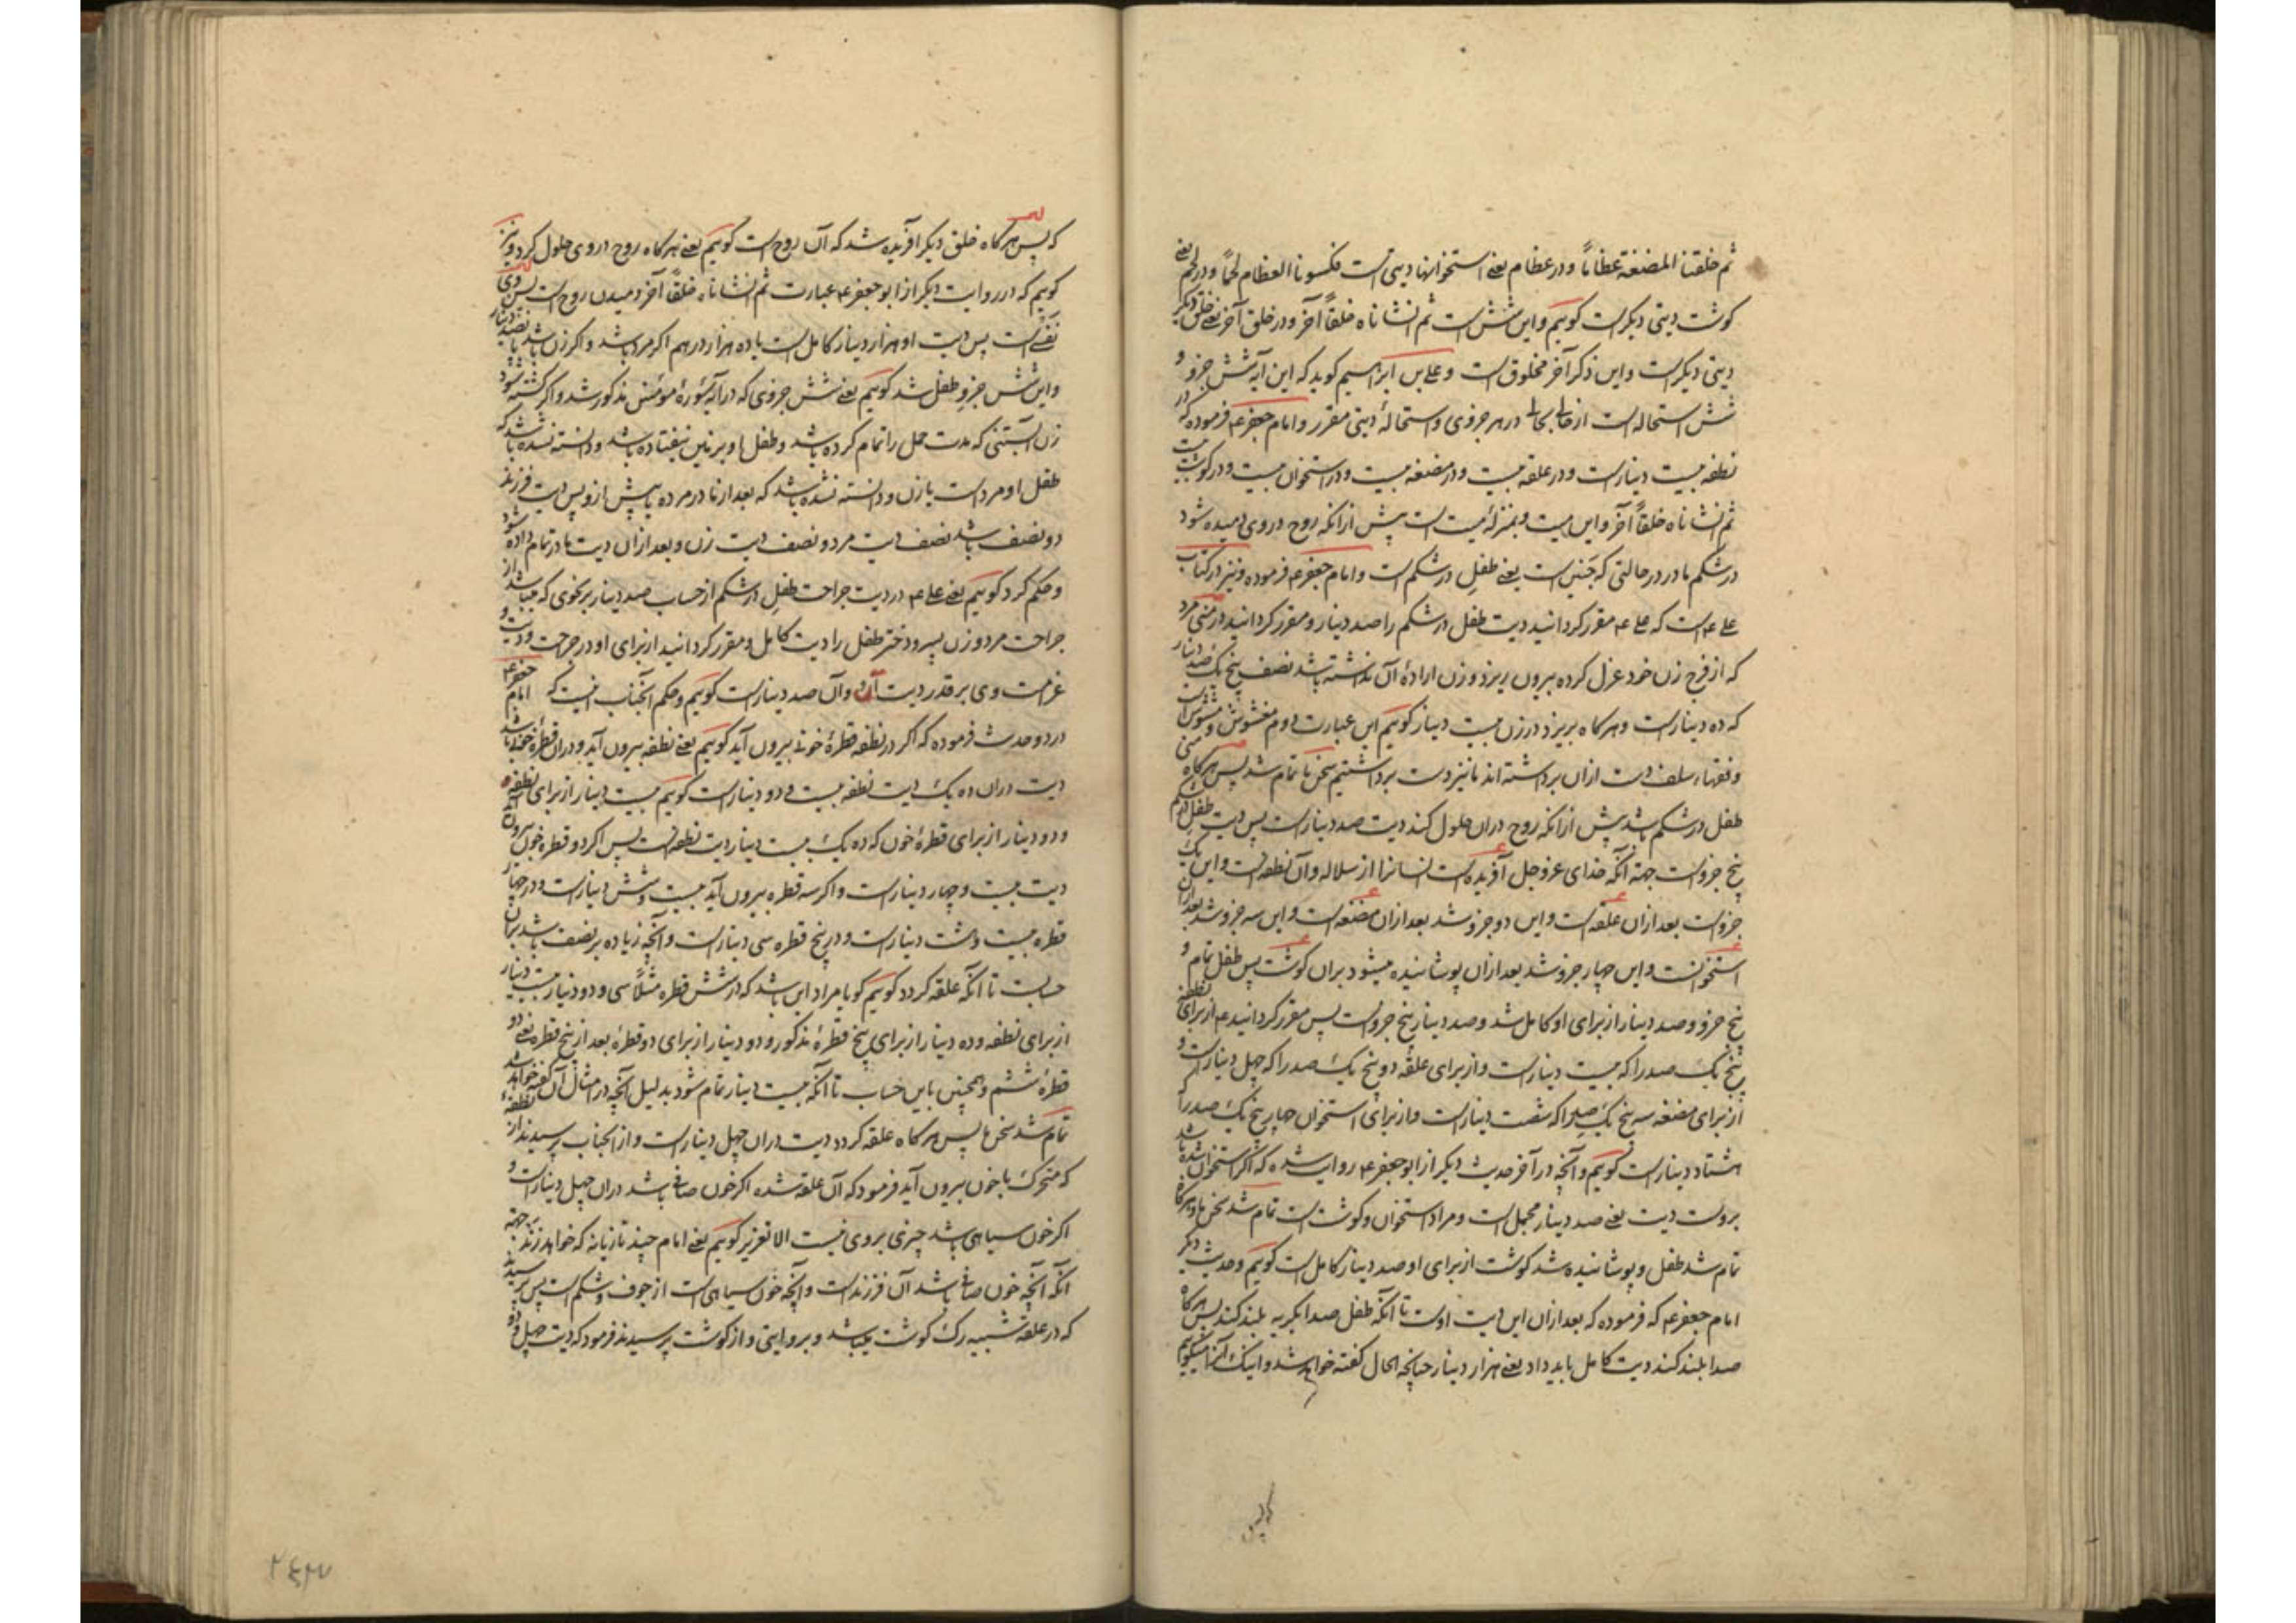 ثم خلقنا المضغة عظاماً و در عظام یعنی استخوانها دیتی است فکسونا العظام لحماً و در لحم یعنی
کوشت دیتی دیکر است کوییم و این شش است ثم انشاناه خلقاً آخر و در خلق آخر یعنی خلق دیکر
دیتی دیکر است و این ذکر آخر مخلوق است و علی بن ابراهیم کوید که این آیه شش جزو و
شش استحاله است از حالی بحالی در هر جزوی و استحالهٔ دیتی مقرر و امام جعفر ع فرموده که در
نطفه بیست دینار است و در علقه بیست و در مضغه بیست و در استخوان بیست و در کوشت بیست
ثم انشاناه خلقاً آخر و این میت و بمنزلهٔ میت است پیش از انکه روح در وی دمیده شود
در شکم مادر در حالتی که جنین است یعنی طفل در شکم است و امام جعفر ع فرموده و نیز در کتاب
علی ع است که علی ع مقرر کردانید دیت طفل در شکم را صد دینار و مقرر کردانید در منی مرد
که از فرج زن خود عزل کرده بیرون ریزد و زن ارادهٔ آن نداشته باشد نصف پنج یک صد دینار
که ده دینار است و هرکاه بریزد در زن بیست دینار کوییم این عبارت دوم مغشوش و مشوش است
و فقهاء سلف دست ازان برداشته اند ما نیز دست برداشتیم سخن ما تمام شد پس هرکاه منی
طفل در شکم باشد پیش ازانکه روح دران حلول کند دیت صد دینار است پس دیت طفل در شکم
پنج جزو است جهة آنکه خدای عز و جل آفریده است انسانرا از سلاله و آن نطفه است و این یک
جزو است بعد ازان علقه است و این دو جزو شد بعد ازان مضغه است و این سه جزو شد بعد ازان
استخوانست و این چهار جزو شد بعد ازان پوشانیده میشود بران کوشت پس طفل تمام و
پنج جزو و صد دینار از برای او کامل شد و صد دینار پنج جزو است پس مقرر کردانید ع از برای نطفه
پنج یک صد را که بیست دینار است و از برای علقه دو پنج یک صد را که چهل دینار است و
از برای مضغه سه پنج یک صد را که شصت دینار است و از برای استخوان چهار پنج یک صد را که
هشتاد دینار است کوییم و آنچه در آخر حدیث دیکر از ابو جعفر ع روایت شده که اکر استخوان شده باشد
بروست دیت یعنی صد دینار مجمل است و مراد استخوان و کوشت است تمام شد سخن ما و هرکاه
تمام شد طفل و پوشانیده شد کوشت از برای او صد دینار کامل است کوییم و حدیث دیکر
امام جعفر ع که فرموده که بعد ازان این دیت اوست تا آنکه طفل صدا بکریه بلند کند پس هرکاه
صدا بلند کند دیت کامل باید داد یعنی هزار دینار چنانچه الحال کفته خواهد شد و اینک آنرا میکوییم
که پس
که پس هرکاه خلق دیکر آفریده شد که آن روح است کوییم یعنی هرکاه روح در وی حلول کرد و نیز
کوییم که در روایت دیکر از ابو جعفر ع عبارت ثم انشاناه خلقاً آخر دمیدن روح است پس وی
نفسی است پس دیت او هزار دینار کامل است یا ده هزار درهم اکر مرد باشد و اکر زن باشد پانصد دینار
و این شش جزو طفل شد کوییم یعنی شش جزوی که در آیهٔ سورهٔ مومنین مذکور شد و اکر کشته شود
زن آبستنی که مدت حمل را تمام کرده باشد و طفل او بر زمین نیفتاده باشد و دانسته نشده باشد که
طفل او مرد است یا زن و دانسته نشده باشد که بعد از مادر مرده یا پیش ازو پس دیت فرزند
دو نصف باشد نصف دیت مرد و نصف دیت زن و بعد ازان دیت مادر تمام داده شود
و حکم کرد کوییم یعنی علی ع در دیت جراحت طفل در شکم از حساب صد دینار بر نحوی که میباشد از
جراحت مرد و زن پسر و دختر طفل را دیت کامل و مقرر کردانید از برای او در جراحت و دیت و
غرامت وی بر قدر دیت او و آن صد دینار است کوییم و حکم آنجناب اینست که امام جعفر ع
در دو حدیث فرموده که اکر در نطفه قطرهٔ خونی بیرون آید کوییم یعنی نطفه بیرون آید و دران قطرهٔ خونی باشد
دیت دران ده یک دیت نطفه بیست و دو دینار است کوییم بیست دینار از برای نطفه
و دو دینار از برای قطرهٔ خون که ده یک بیست دینار دیت نطفه است پس اکر دو قطره خون بیرون آید
دیت بیست و چهار دینار است و اکر سه قطره بیرون آید بیست و شش دینار است و در چهار
قطره بیست و هشت دینار است و در پنج قطره سی دینار است و آنچه زیاده بر نصف باشد بران
حسابست تا آنکه علقه کردد کوییم کویا مراد این باشد که در شش قطره مثلاً سی و دو دینار است بیست دینار
از برای نطفه و ده دینار از برای پنج قطرهٔ مذکور و دو دینار از برای دو قطرهٔ بعد از پنج قطره یعنی دو
قطرهٔ ششم و همچنین باین حساب تا آنکه بیست دینار تمام شود بدلیل آنچه در امثال آن کفته خواهد شد
تمام شد سخن ما پس هرکاه علقه کردد دیت دران چهل دینار است و از آنجناب پرسیدند از نطفهٔ
که متحرک با خون بیرون آید فرمود که آن علقه شده اکر خون صافی باشد دران چهل دینار است و
اکر خون سیاهی باشد چیزی بروی نیست الا تعزیر کوییم یعنی امام چند تازیانه که خواهد زند جهة
انکه آنچه خون صافی باشد آن فرزند است و آنچه خون سیاهی است از جوف و شکم است پس پرسیدند
که در علقه شبیه رک کوشت میباشد و بروایتی و از کوشت پرسیدند فرمود که دیت چهل و دو
۲۴۳